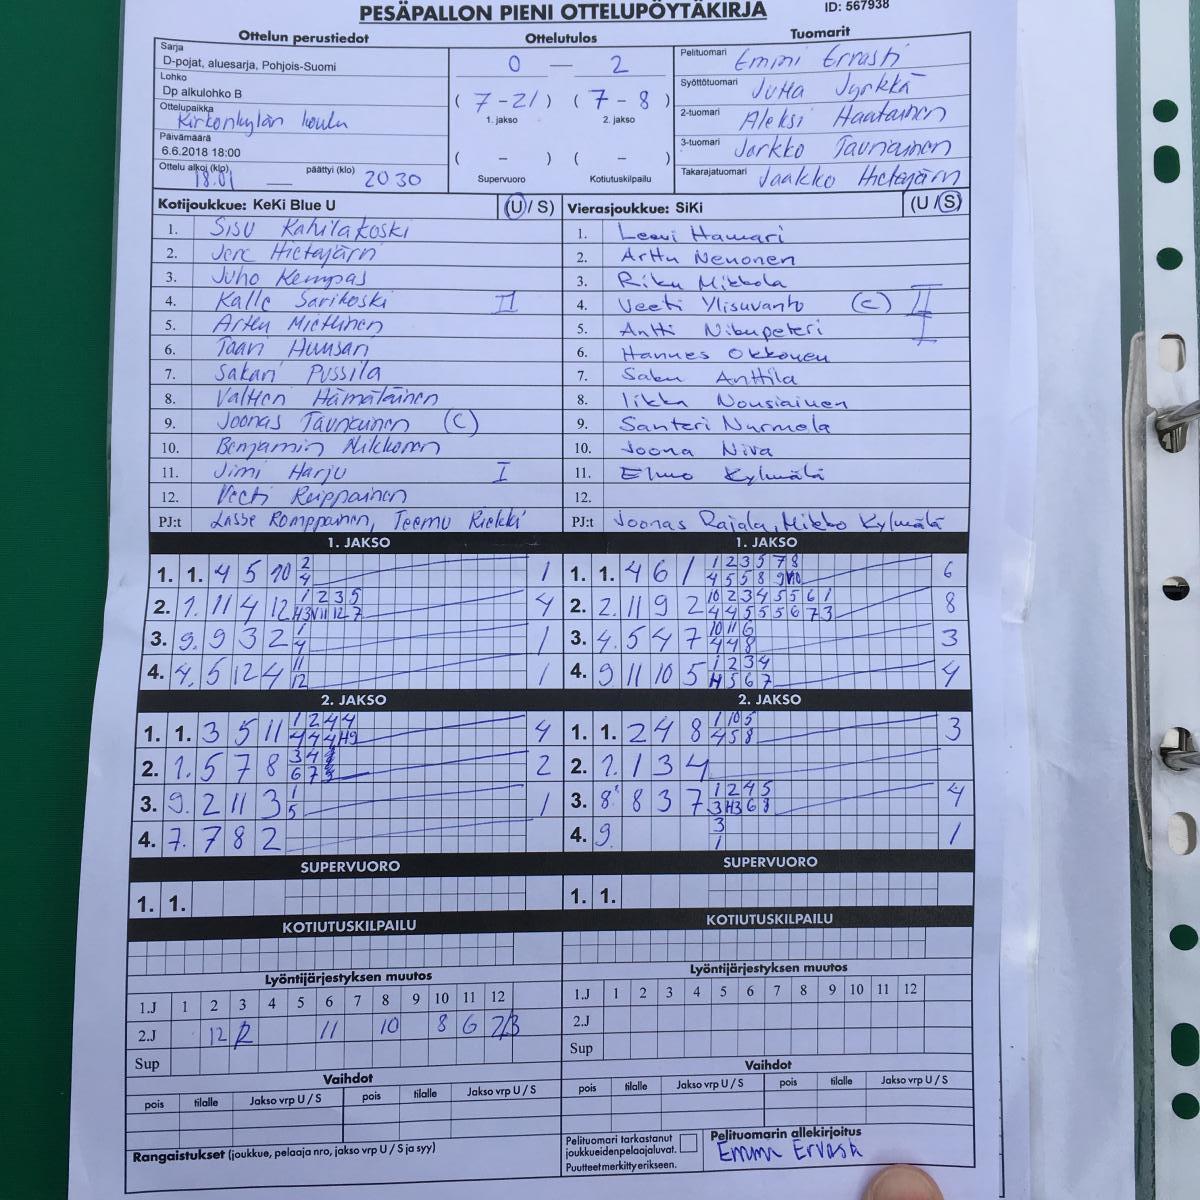 PESÄPALLON PIENI OTTELUPÖYTÄKIRJA
ID: 567938
Ottelun perustiedot
Ottelutulos
Tuomarit
Sarja
D-pojat, aluesarja, Pohjois-Suomi
Lohko
Dp alkulohko B
Ottelupaikka
Kirkonkylän koulu
Päivämäärä
6.6.2018 18:00
Ottelu alkoi (klo) 18.01 — päättyi (klo) 20 30
0 — 2
( 7 - 21 ) ( 7 - 8 )
1. jakso 2. jakso
( - ) ( - )
Supervuoro Kotiutuskilpailu
Pelituomari
Syöttötuomari Jutta Jyrkkä
2-tuomari Aleksi Haatainen
3-tuomari Jarkko Taunainen
Takarajatuomari Jaakko Hietajärvi
Kotijoukkue: KeKi Blue U (U / S)
1. Sisu Kahilakoski
2. Jere Hietajärvi
3. Juho Kempas
4. Kalle Sarikoski II
5. Arttu Miettinen
6.
7. Sakari Pussila
8. Valtteri Hämäläinen
9. Joonas (C)
10. Benjamin Mikkonen
11. Jimi Harju I
12. Veeti Reippainen
PJ:t Lasse Romppainen, Teemu
Vierasjoukkue: SiKi (U / S)
1. Leevi Hamari
2. Arttu Nenonen
3. Riku Mikkola
4. Veeti Ylisuvanto (C) II
5. Antti I
6. Hannes Okkonen
7. Saku Anttila
8. Iikka Nousiainen
9. Santeri Nurmela
10. Joona Niva
11. Elmo Kylmälä
12.
PJ:t Joonas Rajala, Mikko Kylmälä
1. JAKSO
1. 1. 4 5 10 1
2. 1. 11 4 12 4
3. 9. 9 3 2 1
4. 4. 5 12 4 1
1. JAKSO
1. 1. 4 6 1 6
2. 2. 11 9 2 8
3. 4. 5 4 7 3
4. 9 11 10 5 4
2. JAKSO
1. 1. 3 5 11 4
2. 1. 5 7 8 2
3. 9. 2 11 3 1
4. 7. 7 8 2
2. JAKSO
1. 1. 2 4 8 3
2. 1 3 4
3. 8. 8 3 7 4
4. 9. 1
SUPERVUORO
1. 1.
SUPERVUORO
1. 1.
KOTIUTUSKILPAILU
KOTIUTUSKILPAILU
Lyöntijärjestyksen muutos
1.J 1 2 3 4 5 6 7 8 9 10 11 12
2.J 12 11 10 8 6
Sup
Lyöntijärjestyksen muutos
1.J 1 2 3 4 5 6 7 8 9 10 11 12
2.J
Sup
Vaihdot
pois tilalle Jakso vrp U / S pois tilalle Jakso vrp U / S
Vaihdot
pois tilalle Jakso vrp U / S pois tilalle Jakso vrp U / S
Rangaistukset (joukkue, pelaaja nro, jakso vrp U / S ja syy)
Pelituomari tarkastanut
joukkueiden pelaajaluvat.
Puutteet merkitty erikseen.
Pelituomarin allekirjoitus